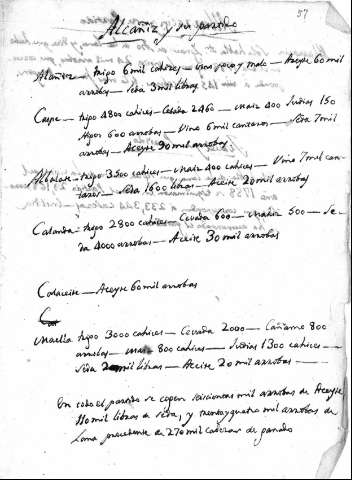 57
Alcañiz y su partido
Alcañiz — trigo 6 mil cahices — vino poco y malo — Aceyte 60 mil
arrobas — seda 3 mil libras
Caspe — trigo 4800 cahices — Cebada 2460 — maiz 400 Judias 150
Higos 600 arrobas — Vino 6 mil cantaros — Seda 7 mil
arrobas — Aceyte 90 mil arrobas
Albalate — trigo 3500 cahices — maiz 400 cahices — Vino 7 mil can-
taros — seda 1600 libras — Aceite 20 mil arrobas
Calanda — trigo 2800 cahices — Cevada 600 — maiz 500 — Se-
da 4000 arrobas — Aceite 30 mil arrobas
Calaceite — Aceyte 60 mil arrobas
Maella trigo 3000 cahices — Cevada 2000 — Cañamo 800
arrobas — maiz 800 cahices — Judias 1300 cahices —
seda 2 mil libras — Aceite 20 mil arrobas —
En todo el partido se cogen seiscientas mil arrobas de Aceyte,
110 mil libras de seda, y treinta y quatro mil arrobas de
Lana procedente de 270 mil cabezas de ganado